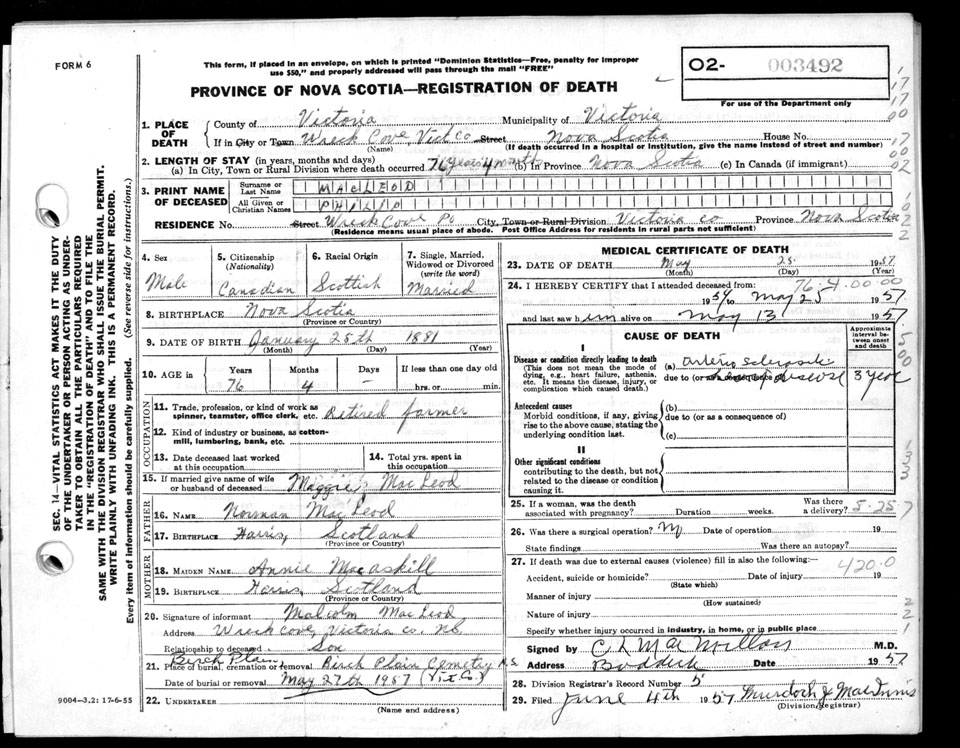 FORM 6
This form, if placed in an envelope, on which is printed "Dominion Statistics—Free, penalty for improper
use $50," and properly addressed will pass through the mail "FREE"
O2- 003492
For use of the Department only
PROVINCE OF NOVA SCOTIA—REGISTRATION OF DEATH
1. PLACE OF DEATH
County of Victoria Municipality of Victoria
If in City or Town Wreck Cove, Vict Co Street Nova Scotia House No.
(Name) (If death occurred in a hospital or institution, give the name instead of street and number)
2. LENGTH OF STAY (in years, months and days)
(a) In City, Town or Rural Division where death occurred 76 years 4 months (b) In Province Nova Scotia (c) In Canada (if immigrant)
3. PRINT NAME OF DECEASED
Surname or Last Name MACLEOD
All Given or Christian Names PHILIP
RESIDENCE No. Street Wreck Cove Po City, Town or Rural Division Victoria Co Province Nova Scotia
(Residence means usual place of abode. Post Office Address for residents in rural parts not sufficient)
4. Sex
Male
5. Citizenship
(Nationality)
Canadian
6. Racial Origin
Scottish
7. Single, Married, Widowed or Divorced
(write the word)
Married
8. BIRTHPLACE Nova Scotia
(Province or Country)
9. DATE OF BIRTH January 25th 1881
(Month) (Day) (Year)
10. AGE in
Years Months Days If less than one day old
76 4 — hrs. or min.
OCCUPATION
11. Trade, profession, or kind of work as
spinner, teamster, office clerk, etc. Retired farmer
12. Kind of industry or business, as cotton-
mill, lumbering, bank, etc.
13. Date deceased last worked
at this occupation
14. Total yrs. spent in
this occupation
15. If married give name of wife
or husband of deceased Maggie MacLeod
FATHER
16. NAME Norman MacLeod
17. BIRTHPLACE Harris, Scotland
(Province or Country)
MOTHER
18. MAIDEN NAME Annie Macaskill
19. BIRTHPLACE Harris Scotland
(Province or Country)
20. Signature of informant Malcolm MacLeod
Address Wreck Cove, Victoria Co. NS
Relationship to deceased Son
Birch Plain
21. Place of burial, cremation or removal Birch Plain Cemetery N.S.
Date of burial or removal May 27th 1957 (Vict Co.)
22. UNDERTAKER
(Name and address)
MEDICAL CERTIFICATE OF DEATH
23. DATE OF DEATH May 25 1957
(Month) (Day) (Year)
76-4-00-00
24. I HEREBY CERTIFY that I attended deceased from:
1954 to May 25 1957
and last saw him alive on May 13 1957
CAUSE OF DEATH
Approximate interval between onset and death
I
Disease or condition directly leading to death
(This does not mean the mode of
dying, e.g., heart failure, asthenia,
etc. It means the disease, injury, or
complication which caused death.)
(a) Arterio sclerotic
due to (or as a consequence of) disease 3 year
Antecedent causes
Morbid conditions, if any, giving
rise to the above cause, stating the
underlying condition last.
(b)
due to (or as a consequence of)
(c)
II
Other significant conditions
contributing to the death, but not
related to the disease or condition
causing it.
25. If a woman, was the death
associated with pregnancy? Duration weeks. Was there a delivery?
5-25-7
26. Was there a surgical operation? No Date of operation 19
State findings Was there an autopsy?
27. If death was due to external causes (violence) fill in also the following:
420.0
Accident, suicide or homicide? Date of injury 19
(State which)
Manner of injury
(How sustained)
Nature of injury
Specify whether injury occurred in industry, in home, or in public place
Signed by C L MacMillan M.D.
Address Baddeck Date 1957
28. Division Registrar's Record Number 5
29. Filed June 4th 1957 Murdoch J MacInnis
(Division Registrar)
9004—3.2: 17-6-55
SEC. 14—VITAL STATISTICS ACT MAKES IT THE DUTY
OF THE UNDERTAKER OR PERSON ACTING AS UNDER-
TAKER TO OBTAIN ALL THE PARTICULARS REQUIRED
IN THE "REGISTRATION OF DEATH" AND TO FILE THE
SAME WITH THE DIVISION REGISTRAR WHO SHALL ISSUE THE BURIAL PERMIT.
WRITE PLAINLY WITH UNFADING INK. THIS IS A PERMANENT RECORD.
Every item of information should be carefully supplied. (See reverse side for instructions.)